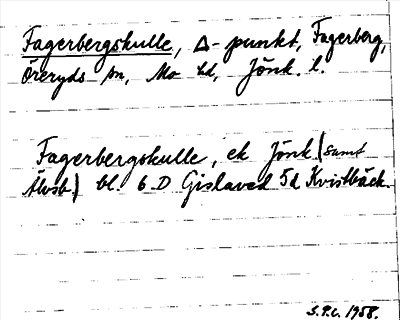 Fagerbergskulle, Δ-punkt, Fagerberg,
Öreryds sn, Mo hd, Jönk. l.
Fagerbergskulle, ek Jönk (samt
Älvsb.) bl. 6 D Gislaved 5d Kvistbäck.
S.P.C. 1958.